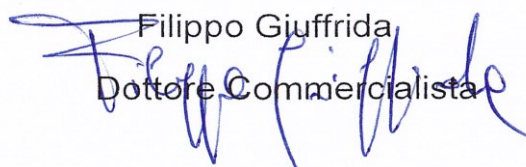 Filippo Giuffrida
Dottore Commercialista
Filippo Giuffrida